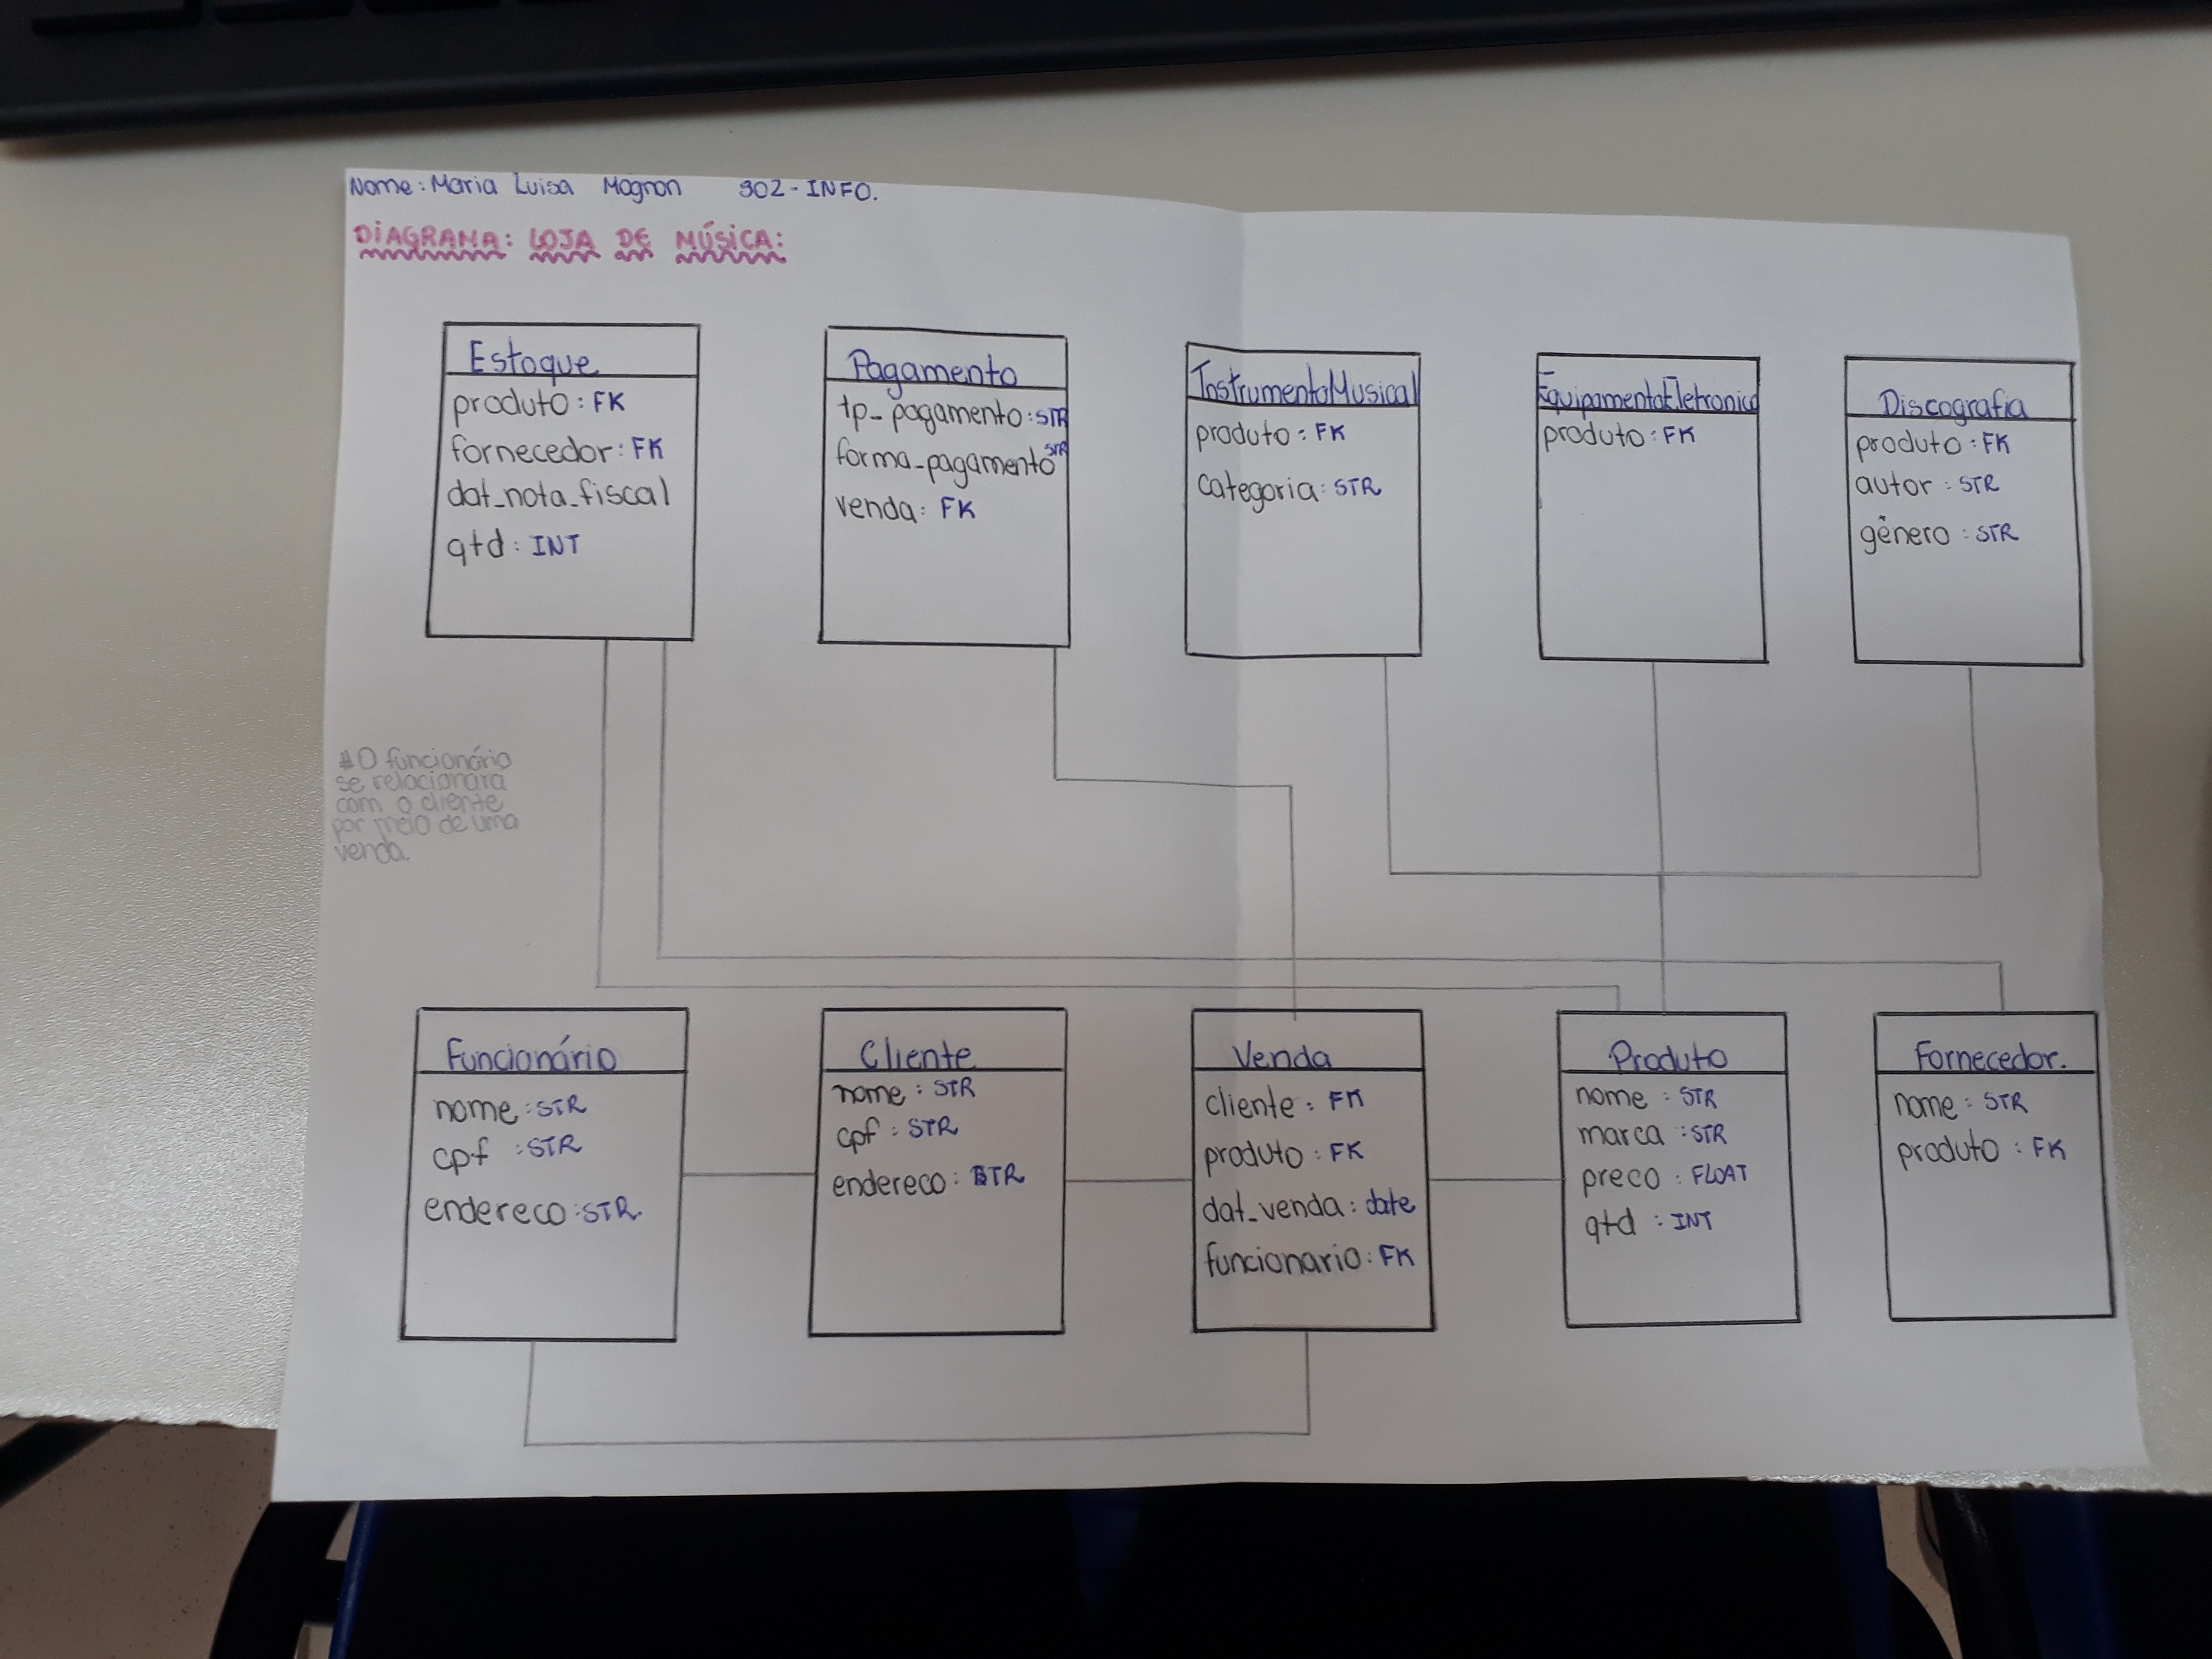 Nome: Maria Luisa Mognon 302-INFO.
DIAGRAMA: LOJA DE MÚSICA:
Estoque
produto: FK
fornecedor: FK
dat_nota_fiscal
qtd: INT
Pagamento
tp_pagamento: STR
forma_pagamento STR
venda: FK
InstrumentoMusical
produto: FK
categoria: STR
EquipamentoEletronico
produto: FK
Discografia
produto: FK
autor: STR
gênero: STR
#O funcionário
se relacionara
com o cliente
por meio de uma
venda.
Funcionário
nome: STR
cpf: STR
endereco: STR.
Cliente
nome: STR
cpf: STR
endereco: STR
Venda
cliente: FK
produto: FK
dat_venda: date
funcionario: FK
Produto
nome: STR
marca: STR
preco: FLOAT
qtd: INT
Fornecedor.
nome: STR
produto: FK